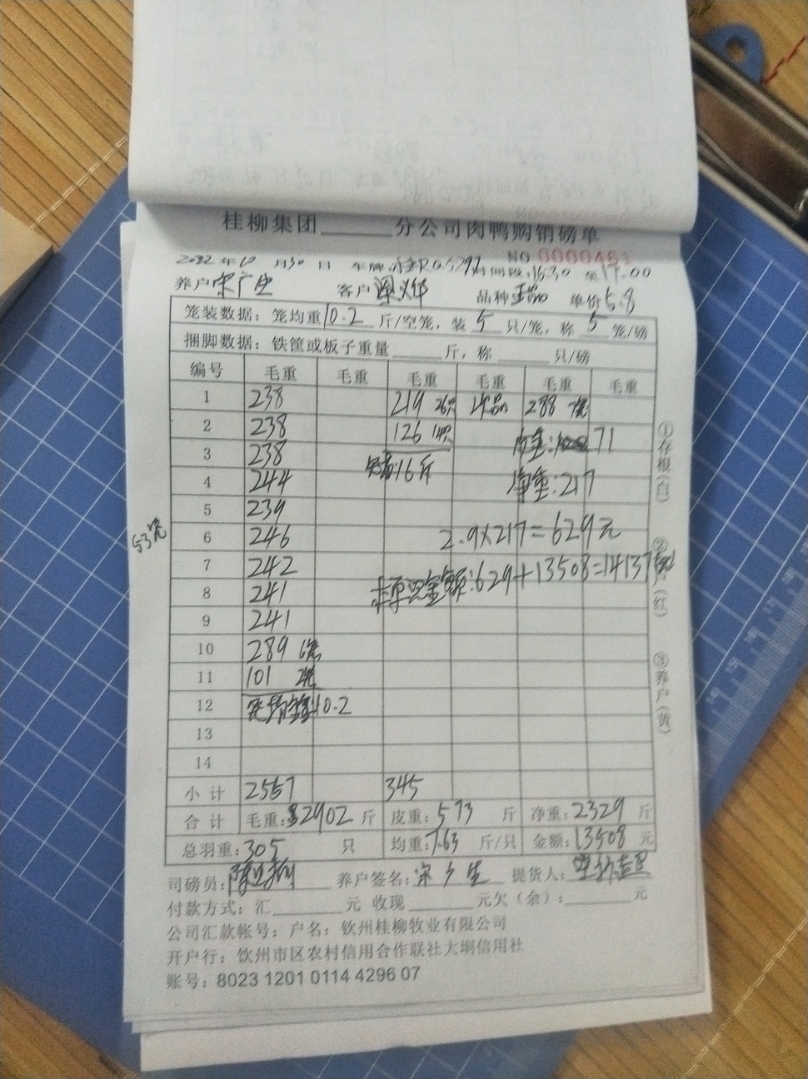 桂柳集团______分公司肉鸭购销磅单
NO 0000461
年10月30日 车牌: 时间段:1630 至17.00
养户 宋广生 客户 品种 单价5.8
笼装数据:笼均重10.2斤/空笼,装5只/笼,称5笼/磅
捆脚数据:铁筐或板子重量______斤,称______只/磅
编号 毛重 毛重 毛重 毛重 毛重 毛重
1 238 219 288
2 238 126 71
3 238 16斤
4 244 净重:217
5 239
6 246 2.9×217=629元
53笼
7 242
8 241 金额:629+13508=14137
9 241
10 289 6笼
11 101 2笼
12 10.2
13
14
小计 2557 345
合计 毛重:2902斤 皮重:573斤 净重:2329斤
总羽重:305只 均重:7.63斤/只 金额:13508元
司磅员: 养户签名:宋广生 提货人:
付款方式:汇______元 收现______元欠(余):______元
公司汇款帐号:户名:钦州桂柳牧业有限公司
开户行:钦州市区农村信用合作联社大垌信用社
账号:8023 1201 0114 4296 07
①存根(白)
②户(红)
③养户(黄)